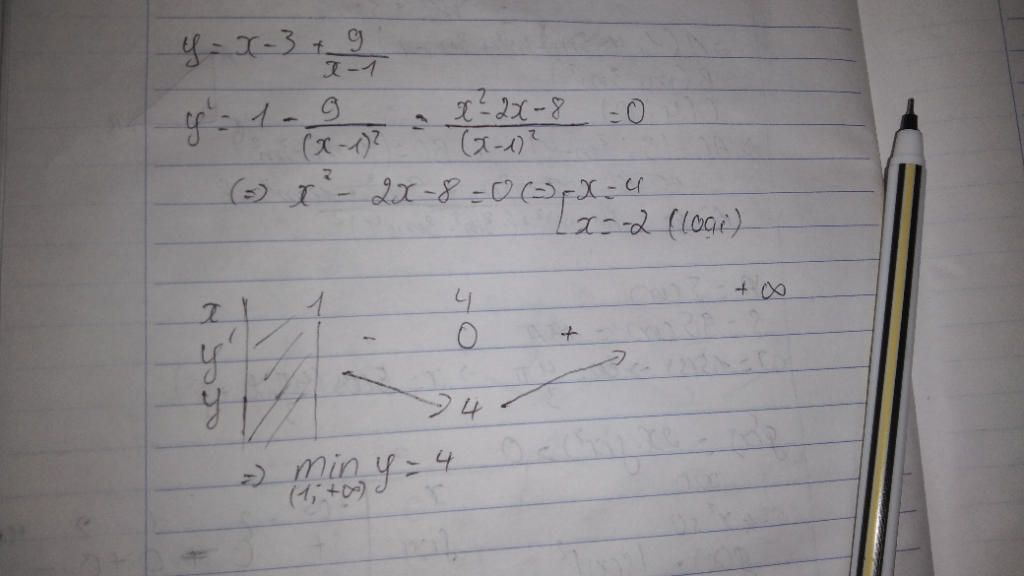 y = x - 3 + 9/(x-1)
y' = 1 - 9/(x-1)² = (x² - 2x - 8)/(x-1)² = 0
(=) x² - 2x - 8 = 0 (=) [ x = 4
x = -2 (loại)
x | 1 4 +∞
y' - 0 +
y 4
=) min y = 4
(1; +∞)